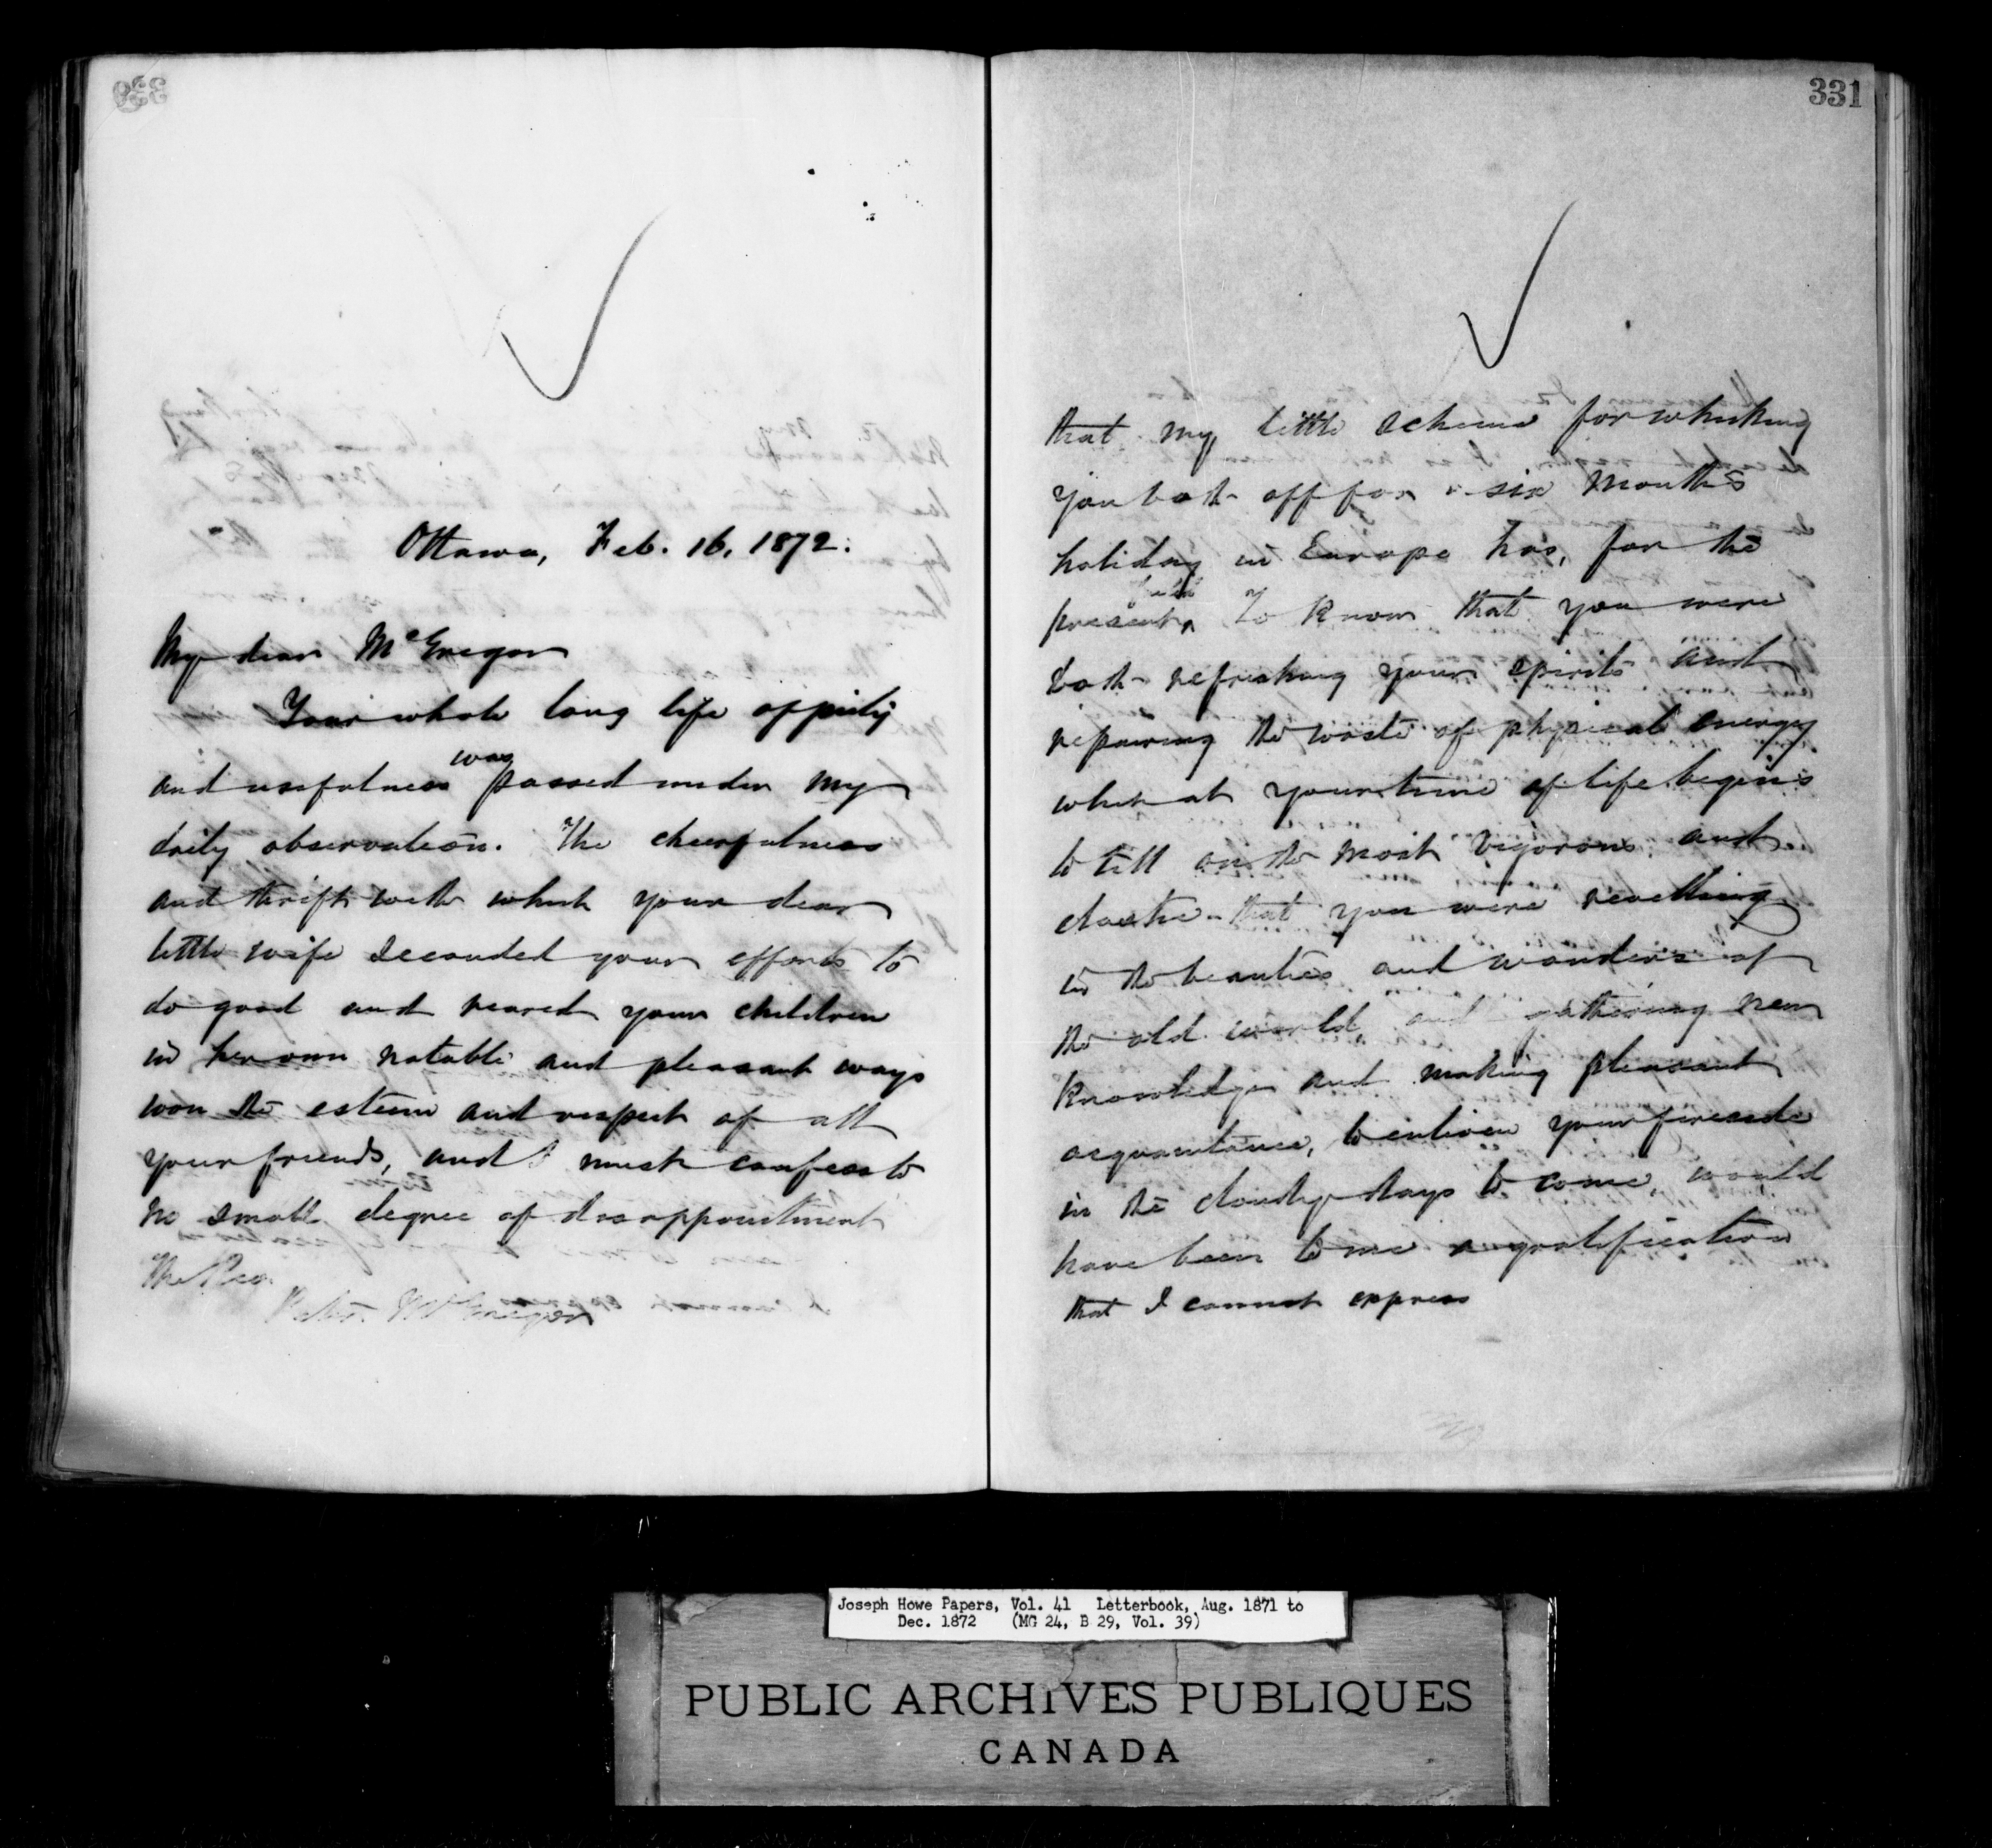 330
Ottawa, Feb. 16, 1872.
My dear McGregor
Your whole long life of piety
was
and usefulness passed under my
daily observation. The cheerfulness
and thrift with which your dear
little wife seconded your efforts to
do good and reared your children
in her own notable and pleasant ways
won the esteem and respect of all
your friends, and I must confess to
no small degree of disappointment
The Rev.
Peter McGregor
331
that my little scheme for whisking
you both off for a six months
holiday in Europe has, for the
failed
present, To know that you were
both refreshing your spirits and
repairing the waste of physical energy
which at your time of life begins
to tell on the most vigorous and
elastic - that you were revelling
in the beauties and wonders of
the old world, and gathering new
knowledge and making pleasant
acquaintance, to enliven your fireside
in the cloudy days to come, would
have been to me a gratification
that I cannot express
Joseph Howe Papers, Vol. 41 Letterbook, Aug. 1871 to
Dec. 1872 (MG 24, B 29, Vol. 39)
PUBLIC ARCHIVES PUBLIQUES
CANADA